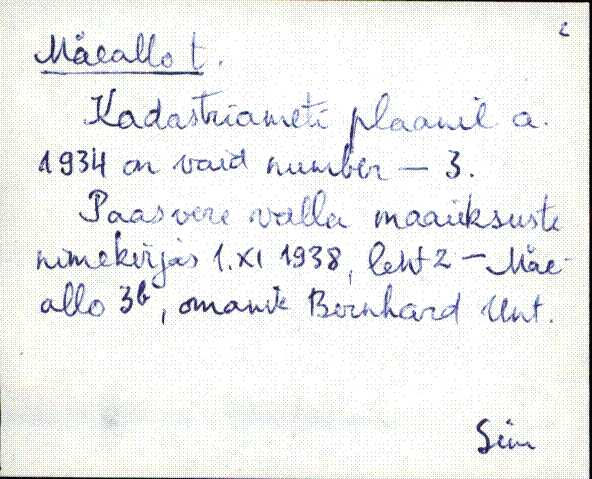 2
Mäeallo t.
Kadastriameti plaanil a.
1934 on vaid number – 3.
Paasvere valla maaüksuste
nimekirjas 1.XI 1938, leht 2 – Mäe-
allo 3b, omanik Bernhard Unt.